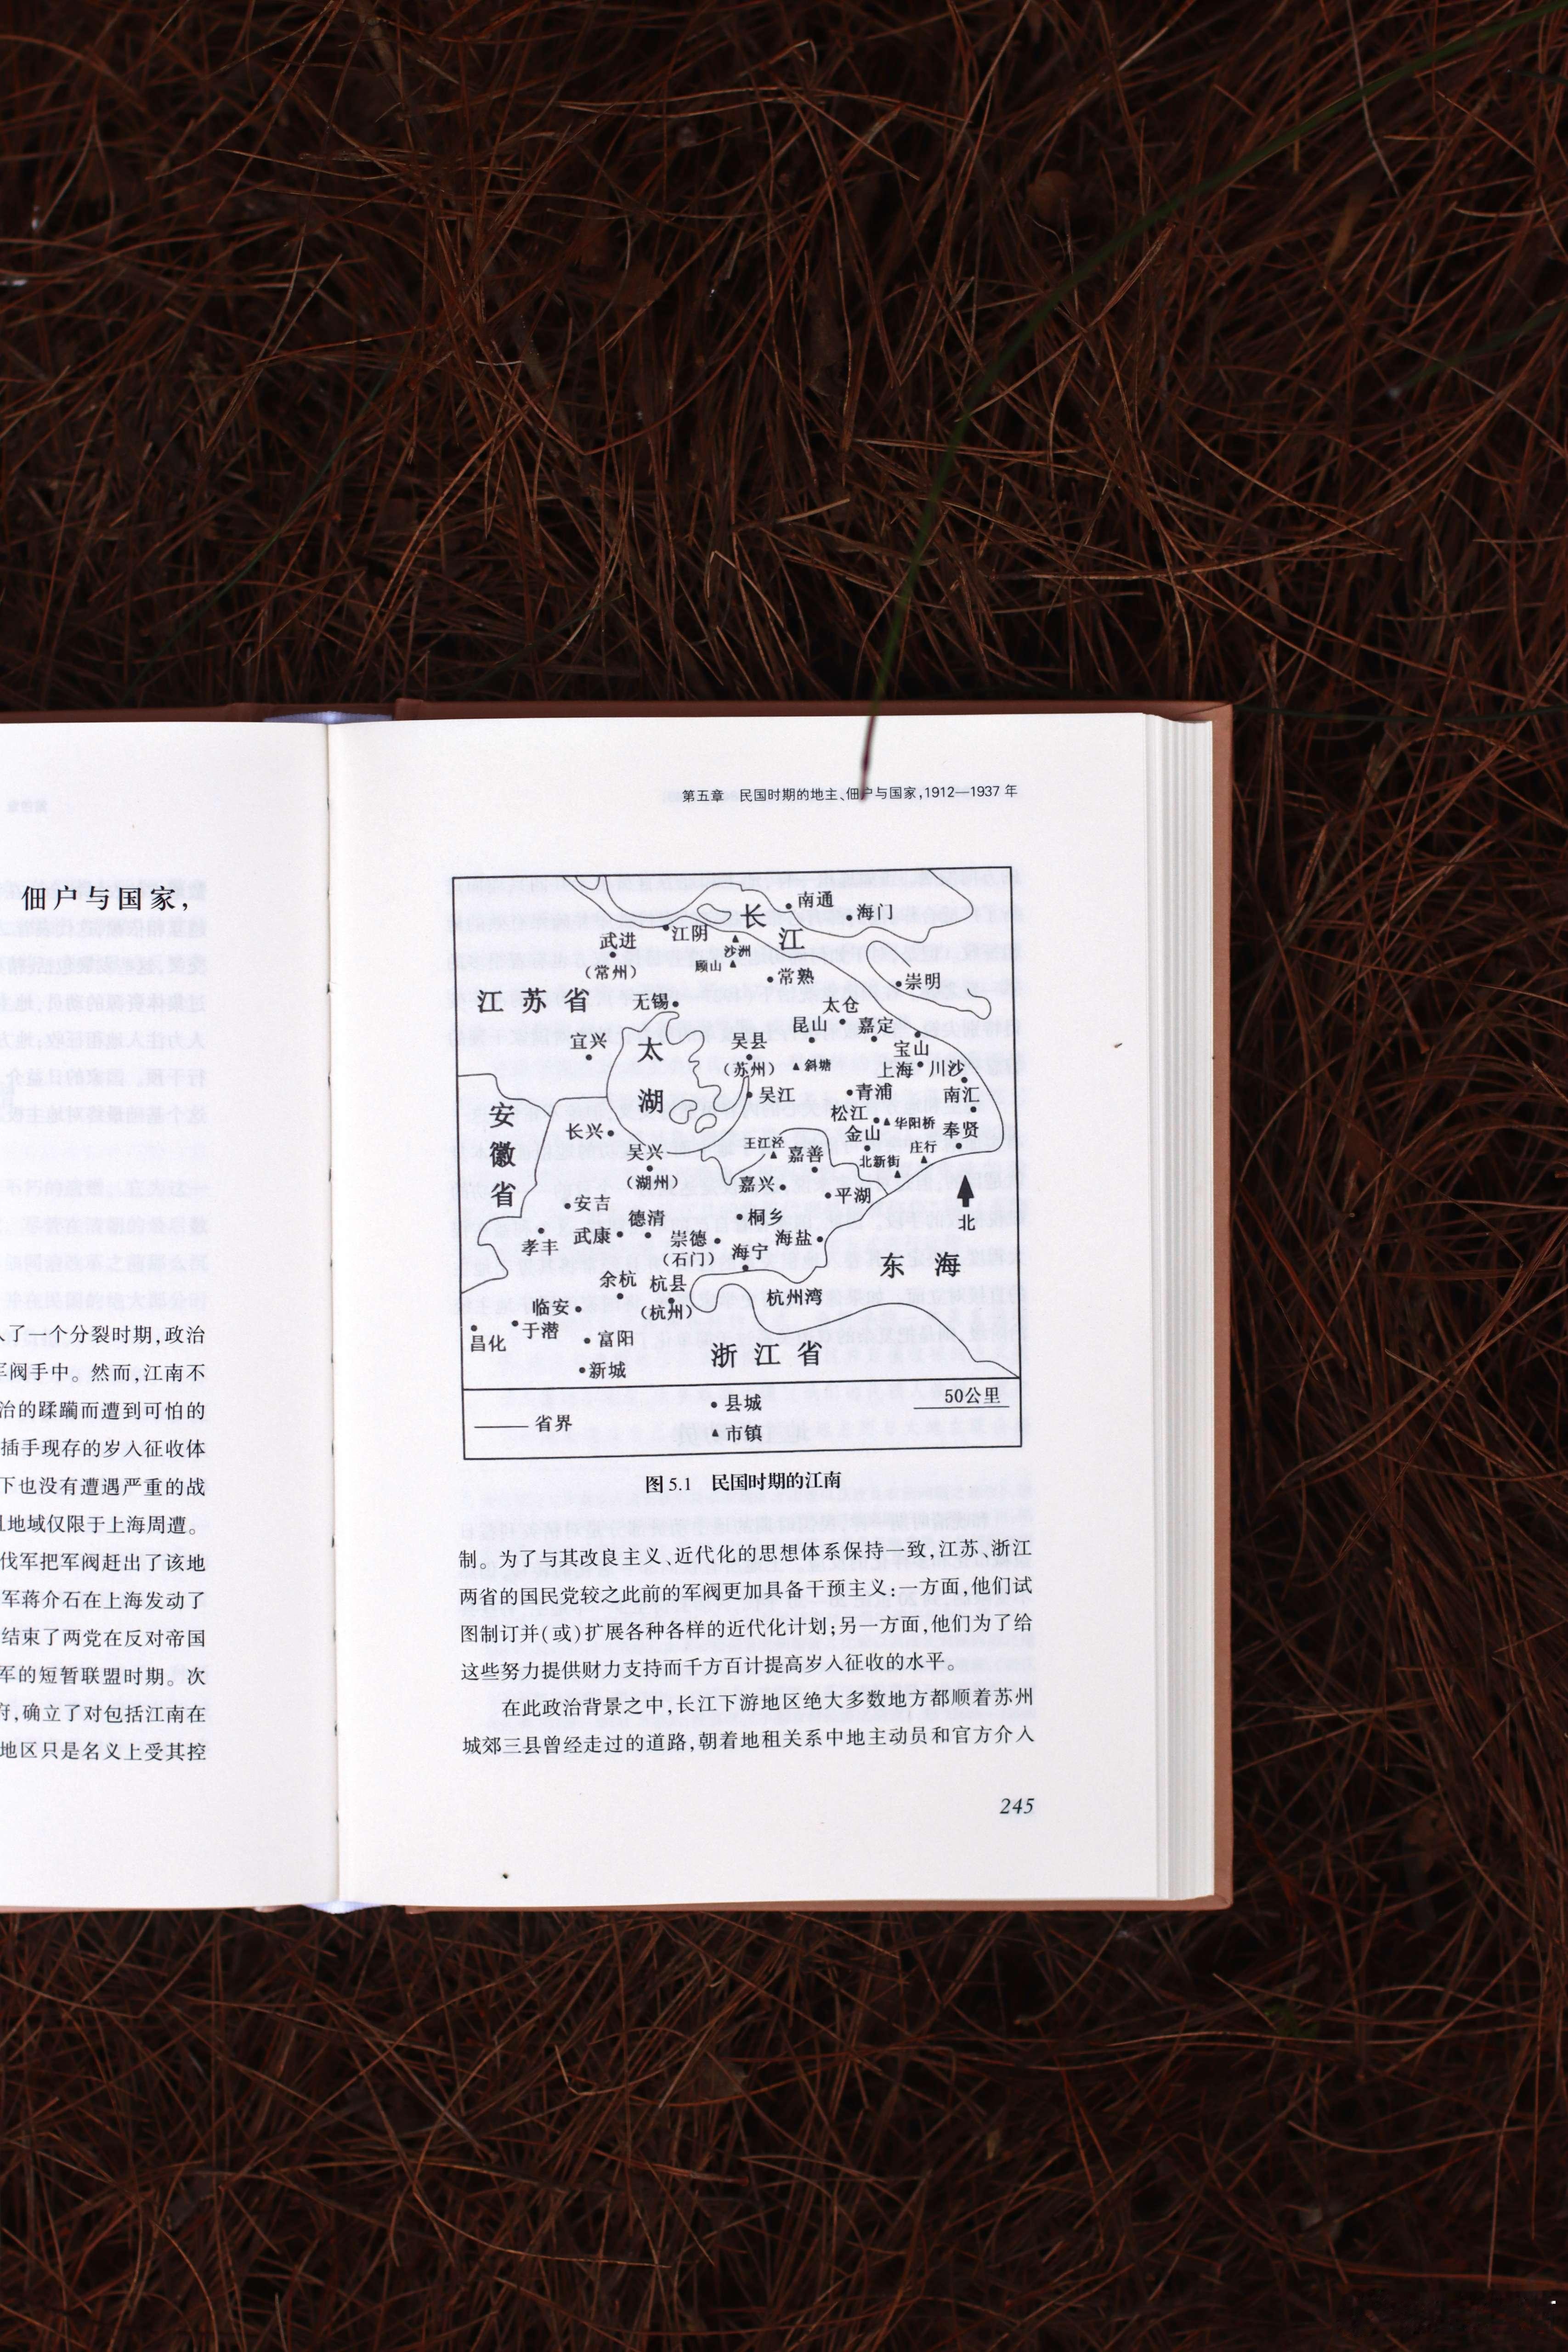 佃户与国家,
入了一个分裂时期,政治
军阀手中。然而,江南不
治的蹂躏而遭到可怕的
插手现存的岁入征收体
下也没有遭遇严重的战
且地域仅限于上海周遭。
伐军把军阀赶出了该地
军蒋介石在上海发动了
结束了两党在反对帝国
军的短暂联盟时期。次
府,确立了对包括江南在
地区只是名义上受其控
第五章 民国时期的地主、佃户与国家,1912—1937 年
南通
海门
长江
江阴
武进
(常州)
沙洲
顾山
常熟
崇明
江苏省
无锡
太仓
昆山
嘉定
宜兴
太湖
吴县
(苏州)
斜塘
宝山
上海
川沙
吴江
青浦
南汇
安徽省
松江
华阳桥
长兴
金山
奉贤
王江泾
嘉善
庄行
北新街
吴兴
(湖州)
嘉兴
平湖
安吉
德清
桐乡
北
孝丰
武康
崇德
(石门)
海宁
海盐
东海
余杭
杭县
(杭州)
杭州湾
临安
于潜
昌化
富阳
浙江省
新城
省界
县城
市镇
50公里
图 5.1 民国时期的江南
制。为了与其改良主义、近代化的思想体系保持一致,江苏、浙江
两省的国民党较之此前的军阀更加具备干预主义:一方面,他们试
图制订并(或)扩展各种各样的近代化计划;另一方面,他们为了给
这些努力提供财力支持而千方百计提高岁入征收的水平。
在此政治背景之中,长江下游地区绝大多数地方都顺着苏州
城郊三县曾经走过的道路,朝着地租关系中地主动员和官方介入
245